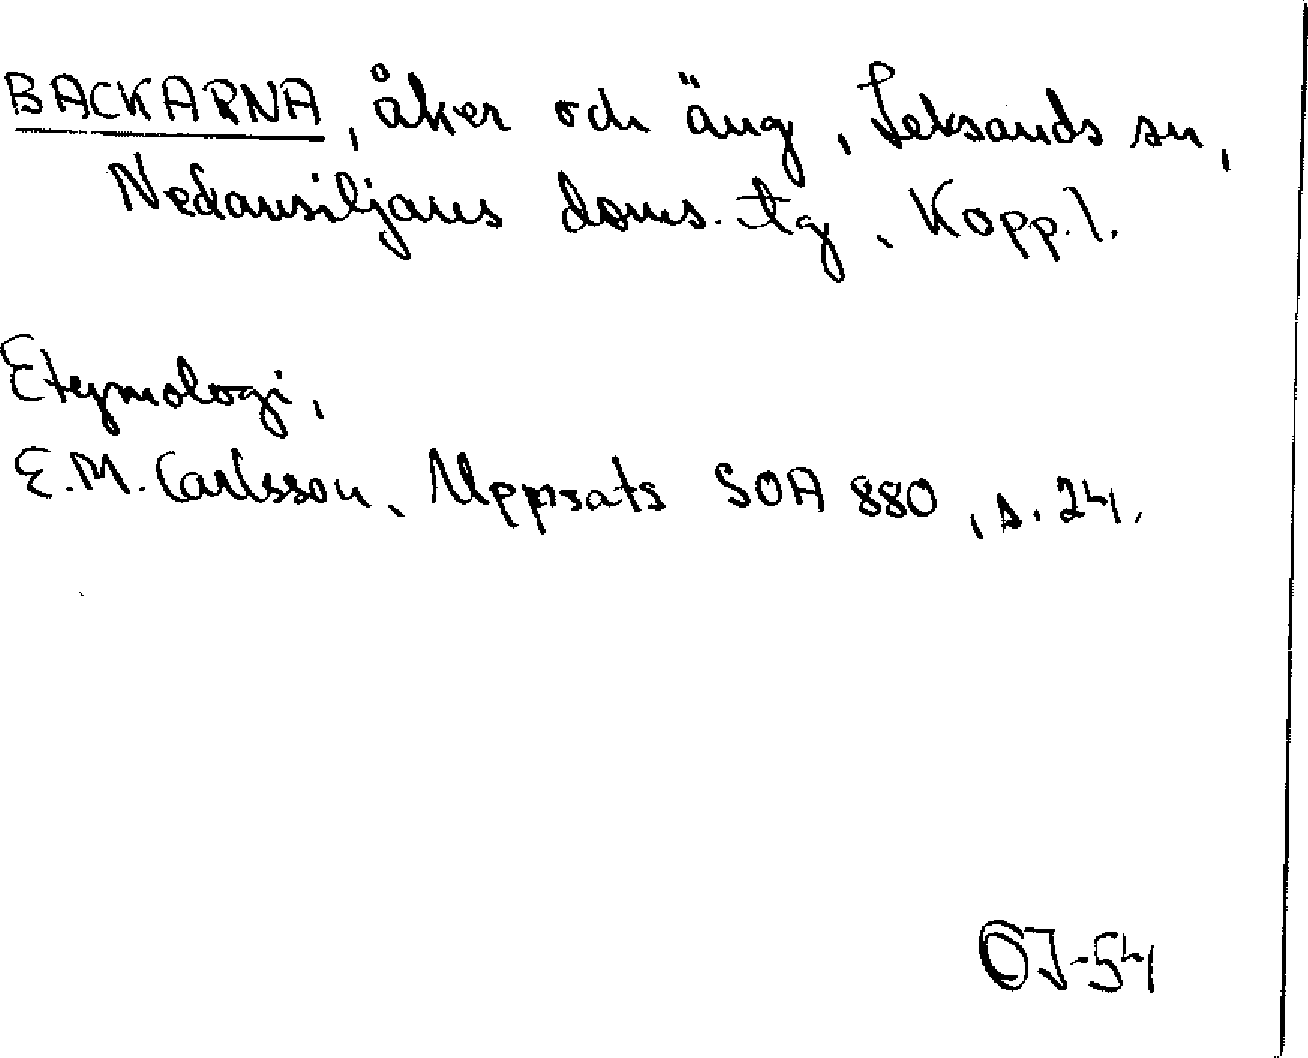 BACKARNA, åker och äng, Leksands sn,
Nedansiljans doms. tg, Kopp.l.
Etymologi,
E.M. Carlsson, Uppsats SOA 880, s. 24.
OJ-54